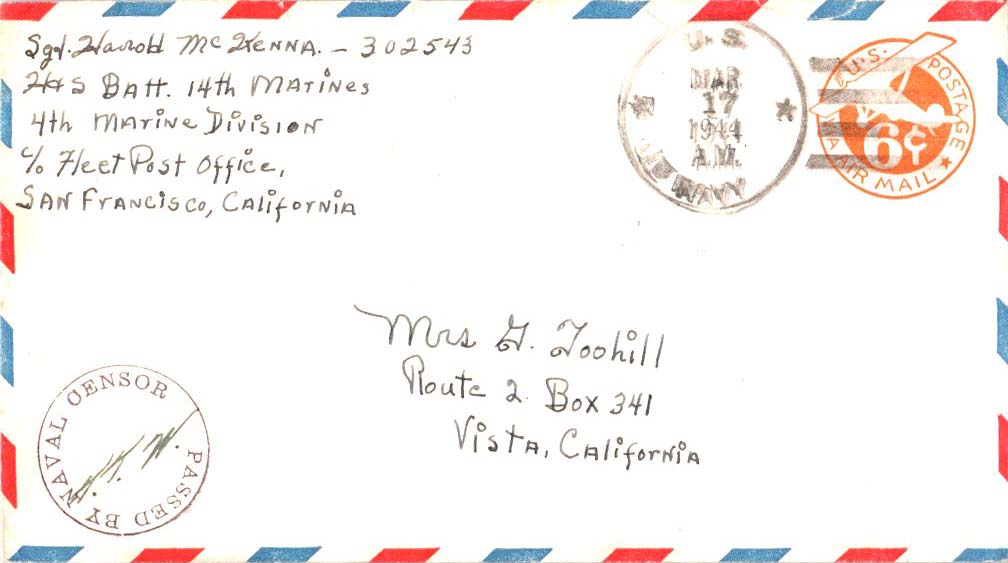 Sgt. Harold McKenna. - 302543
H+S Batt. 14th Marines
4th Marine Division
c/o Fleet Post Office,
San Francisco, California
U.S.
MAR
17
1944
A.M.
NAVY
U.S. POSTAGE
6¢
VIA AIR MAIL
Mrs G. Toohill
Route 2 Box 341
Vista, California
PASSED BY NAVAL CENSOR